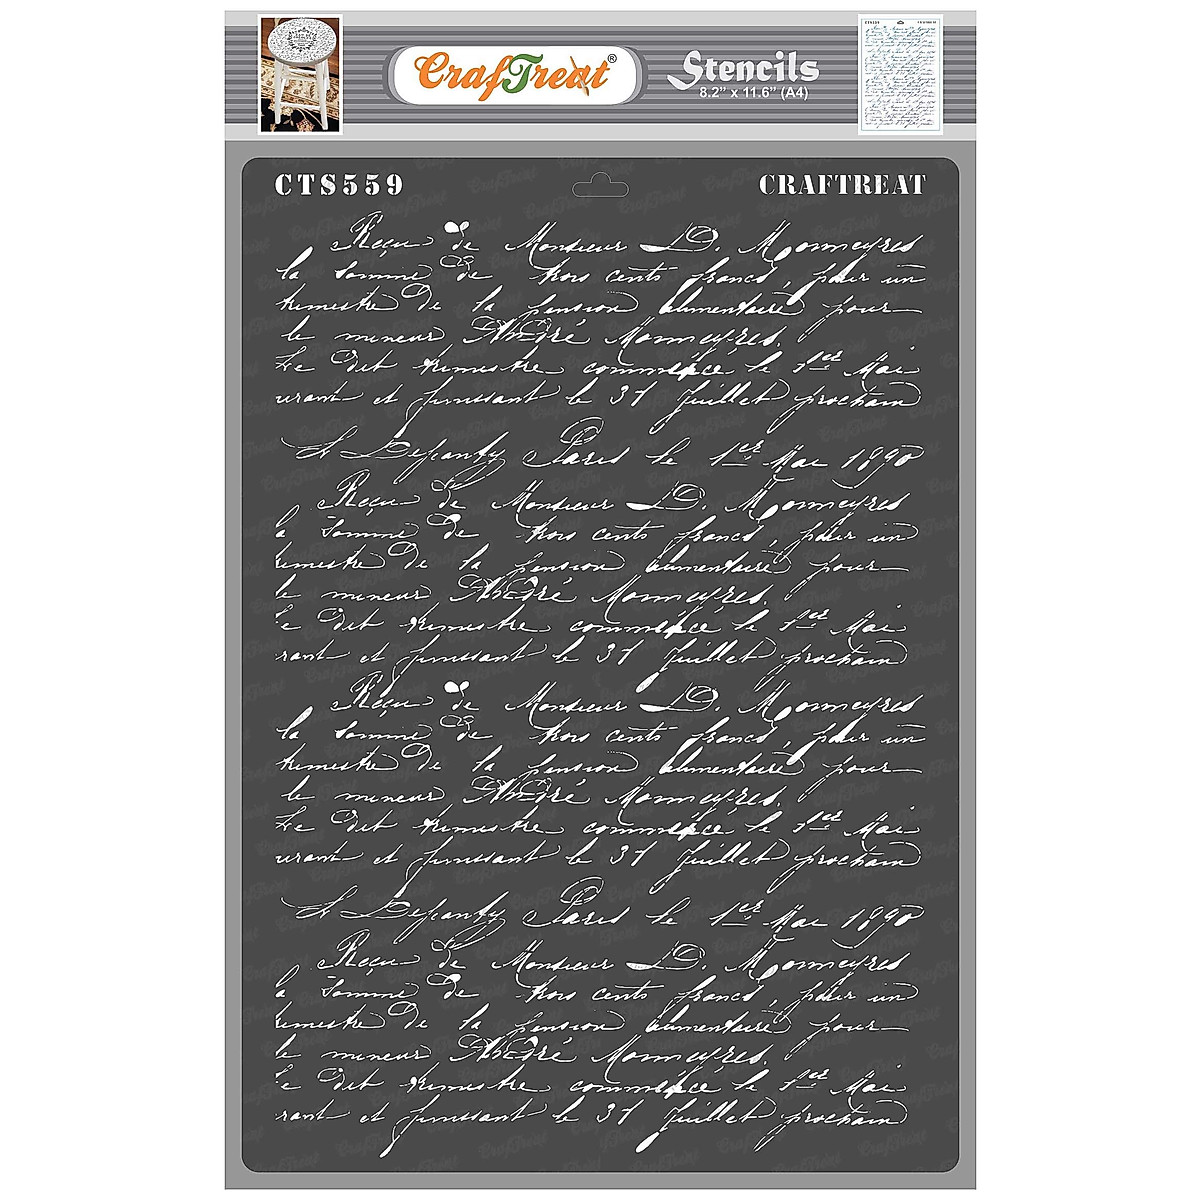 CrafTreat®
Stencils
8.2" x 11.6" (A4)
CTS559 CRAFTREAT
Reçu de Monsieur D. Monmeyres
la somme de trois cents francs, pour un
trimestre de la pension alimentaire pour
le mineur André Monmeyres.
Le dit trimestre commence le 1er Mai
urant et finissant le 31 Juillet prochain
Paris le 1er Mai 1890
Reçu de Monsieur D. Monmeyres
la somme de trois cents francs, pour un
rimestre de la pension alimentaire pour
le mineur André Monmeyres.
Le dit trimestre commence le 1er Mai
rant et finissant le 31 Juillet prochain
Reçu de Monsieur D. Monmeyres
la somme de trois cents francs, pour un
trimestre de la pension alimentaire pour
le mineur André Monmeyres.
Le dit trimestre commence le 1er Mai
urant et finissant le 31 Juillet prochain
Paris le 1er Mai 1890
Reçu de Monsieur D. Monmeyres
la somme de trois cents francs, pour un
rimestre de la pension alimentaire pour
le mineur André Monmeyres.
Le dit trimestre commence le 1er Mai
rant et finissant le 31 Juillet prochain